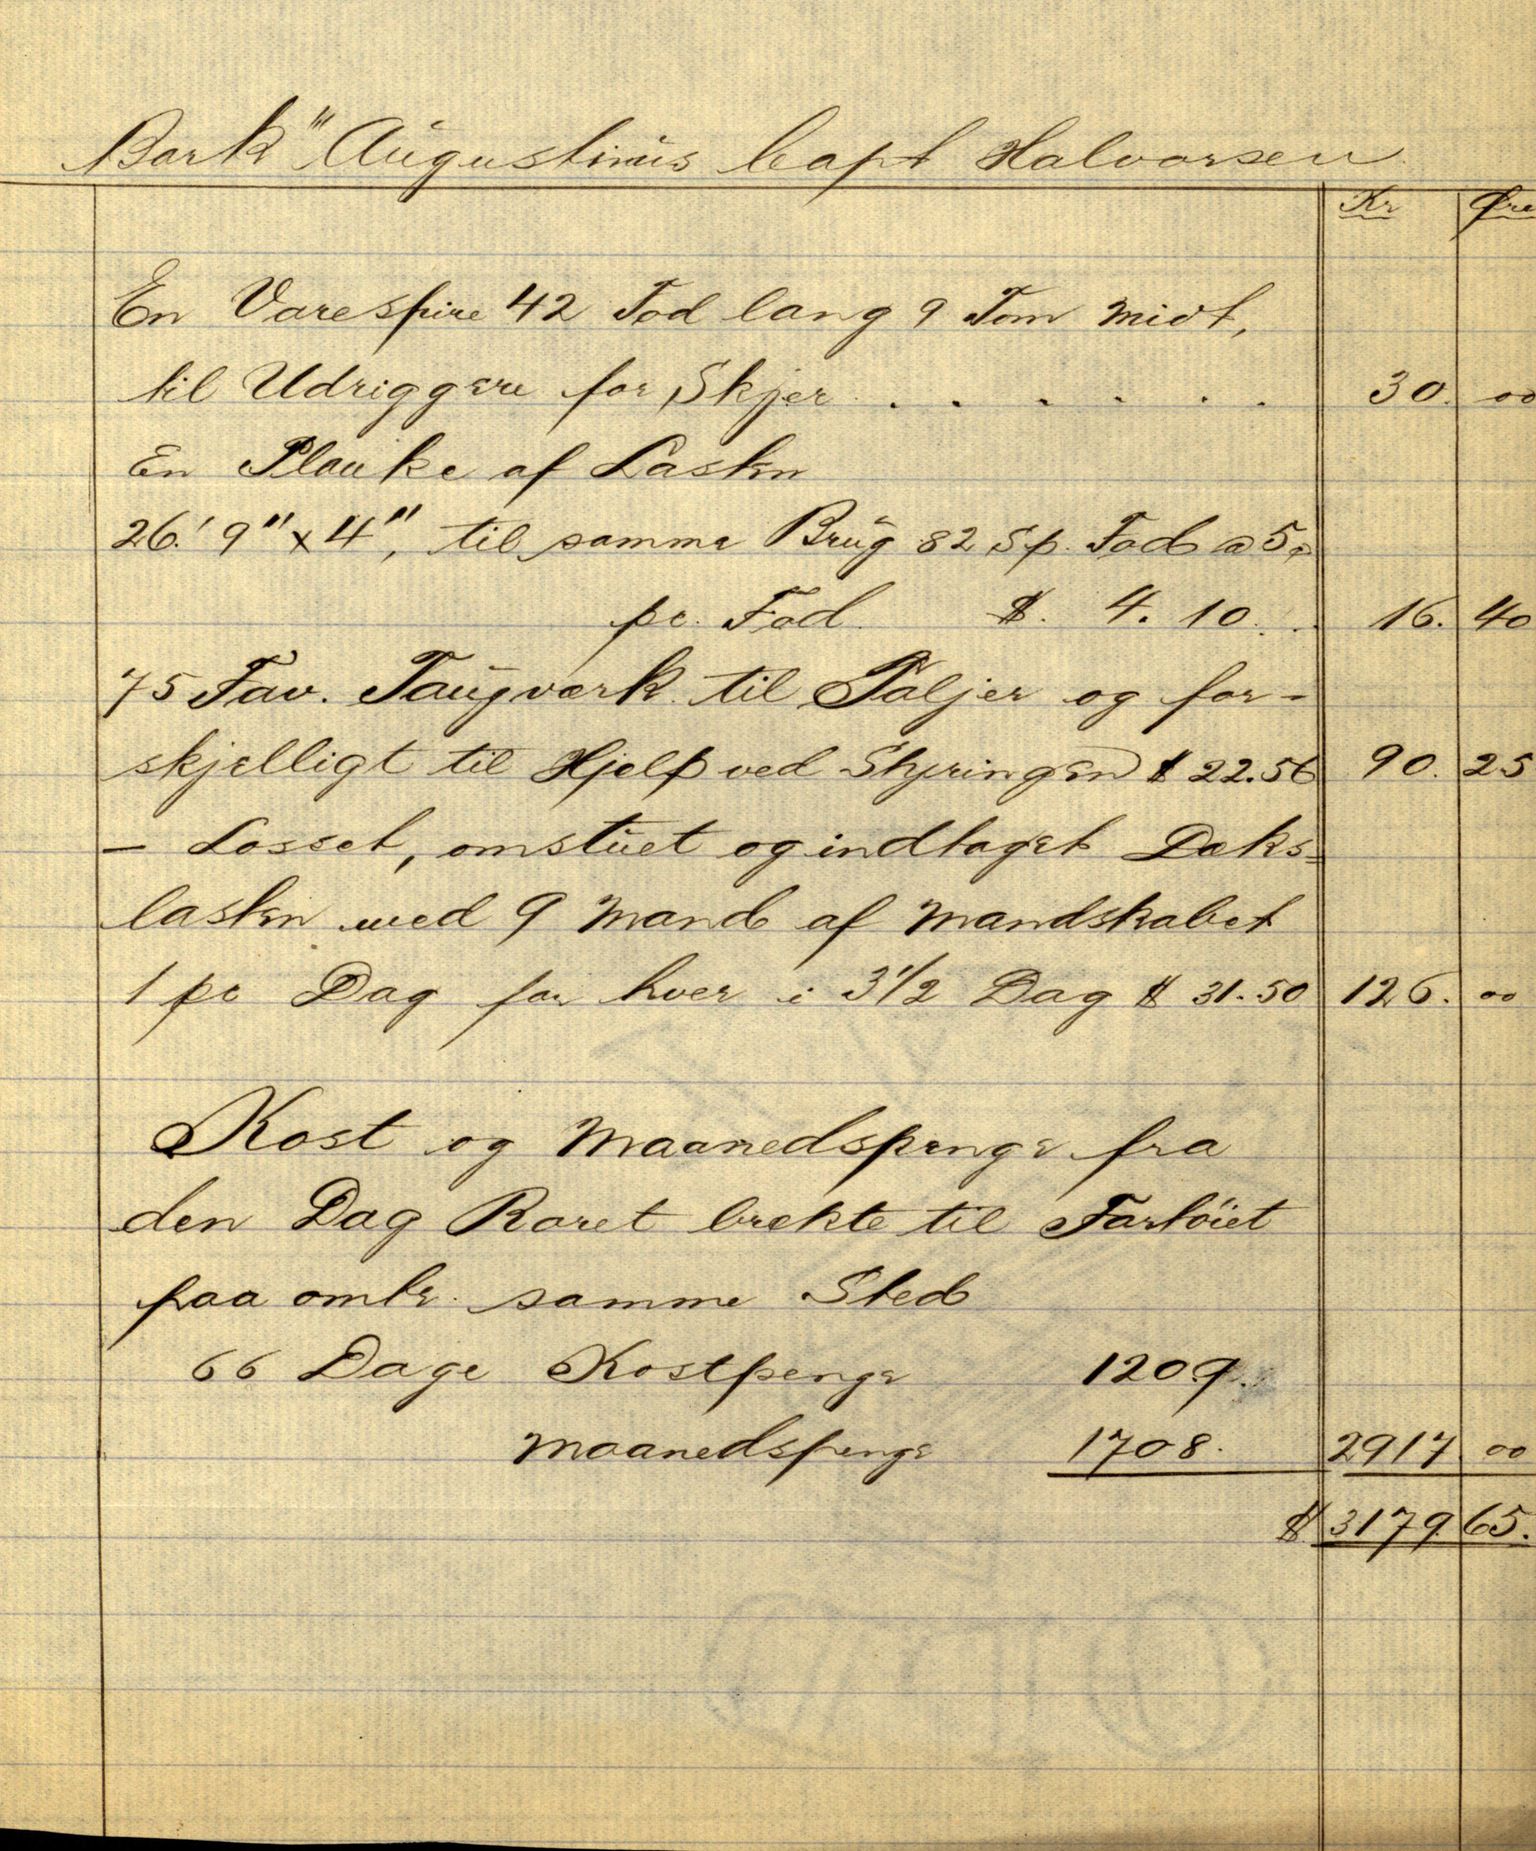 Bark "Augustinus Capt Halvorsen
Kr Øre
En Varespire 42 Fod lang 9 Tom midt,
til Udriggere for Skjer . . . . . . 30. 00
En Planke af Lasten
26.' 9" x 4", til samme Brug 82 Sp. Fod @ 5
pr. Fod. $. 4. 10. . 16. 40
75 Fav. Taugværk til Taljer og for-
skjelligt til Hjelp ved Styringen $ 22.56 90. 25
- Losset, omstuet og indtaget Dæks=
lasten med 9 Mand af Mandskabet
1 pr Dag for hver i 3 1/2 Dag $ 31.50 126. 00
Kost og Maanedspenge fra
den Dag Roret brækte til Fartöiet
paa omtr. samme Sted
66 Dage Kostpenge 1209.
Maanedspenge 1708. 2917 00
$ 3179. 65.